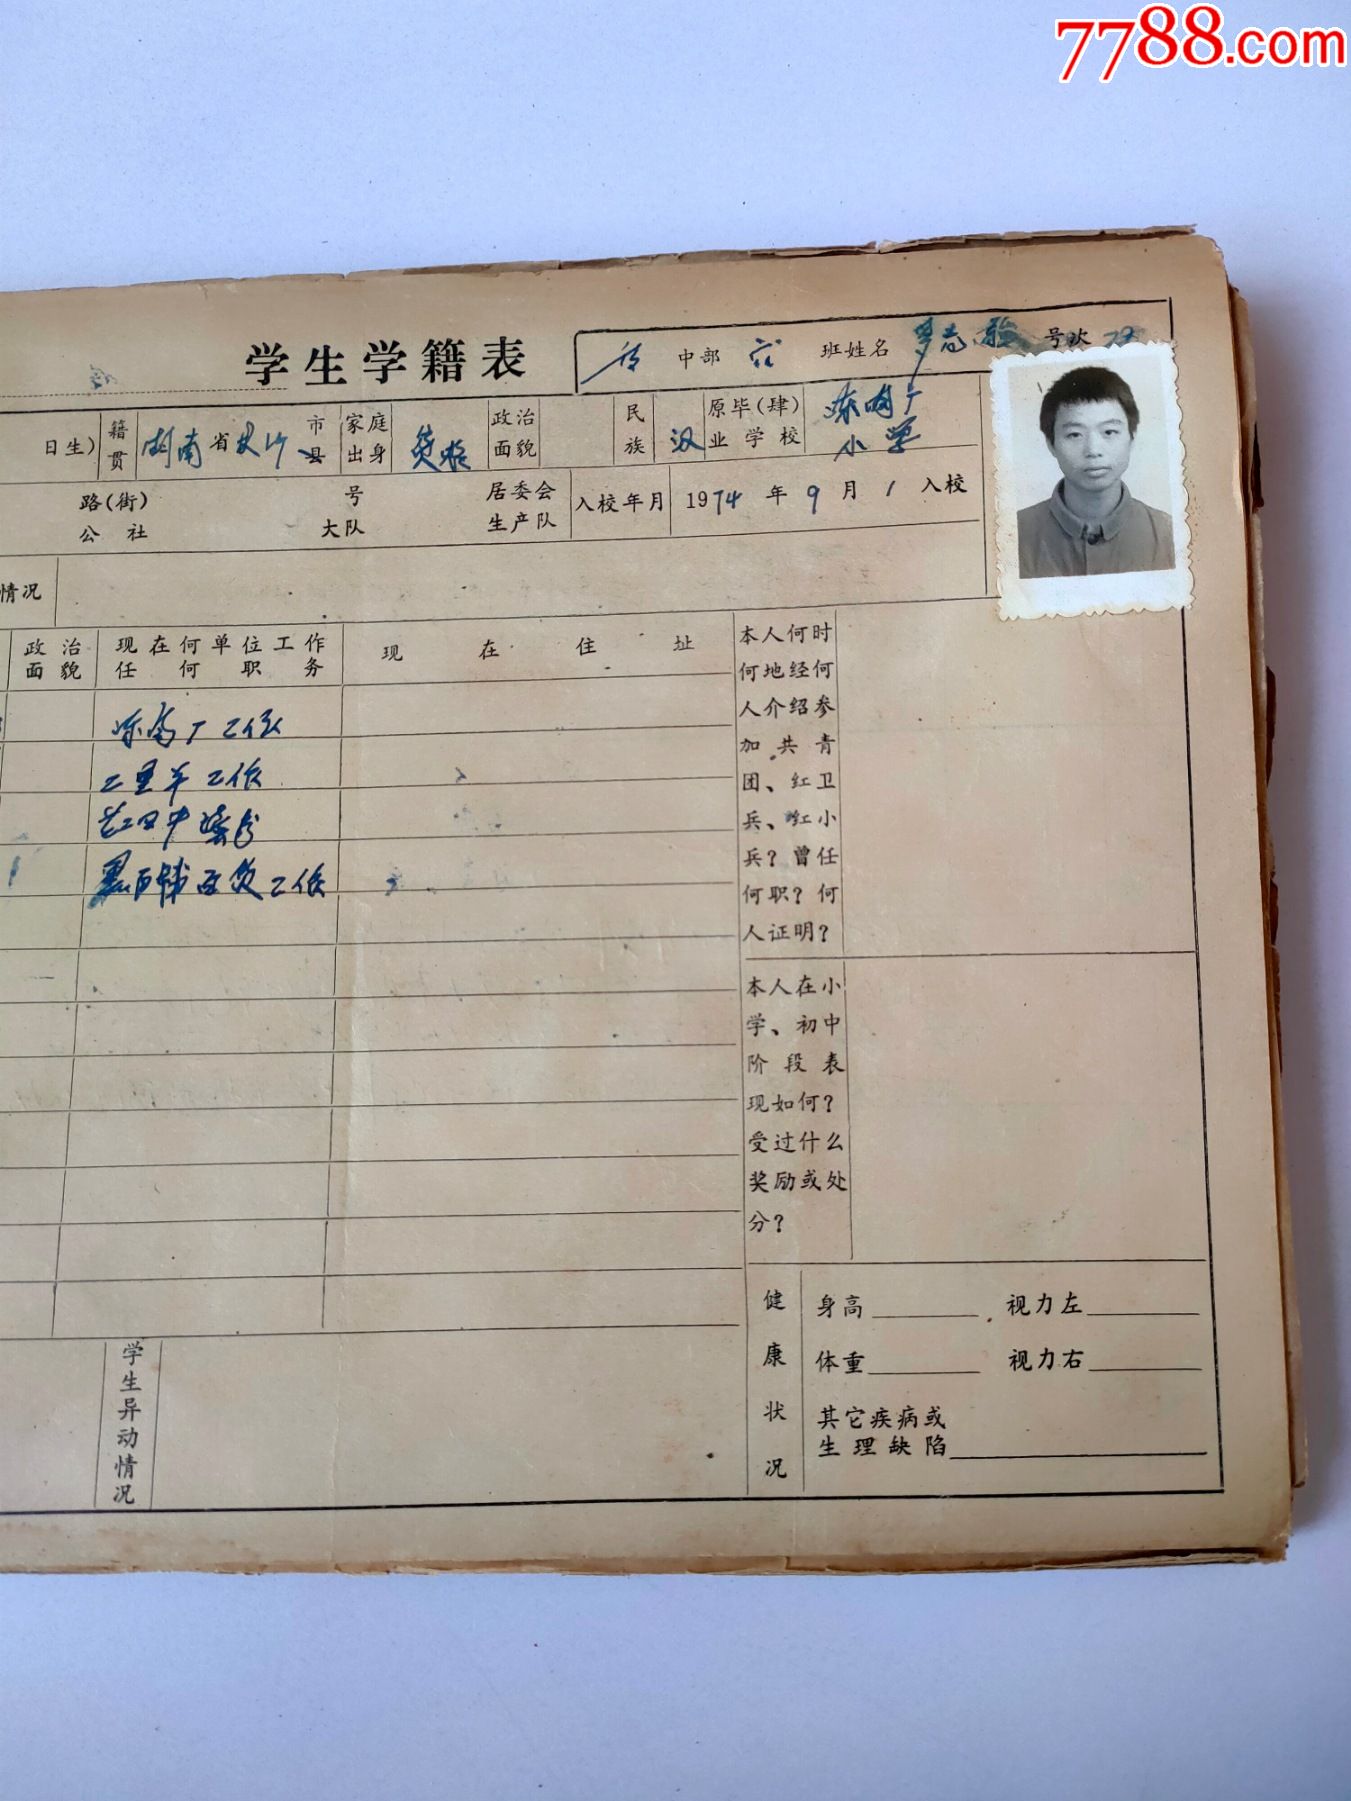 7788.com
学生学籍表
中部 班姓名 罗 号次
日生) 籍贯 湖南省长沙市县 家庭出身 贫农 政治面貌 民族 汉 原毕(肄)业学校 厂小学
路(街) 号 居委会 入校年月 1974年9月1入校
公社 大队 生产队
情况
政治面貌 现在何单位工作任何职务 现在住址
厂工作
工作
工作
本人何时
何地经何
人介绍参
加共青
团、红卫
兵、红小
兵?曾任
何职?何
人证明?
本人在小
学、初中
阶段表
现如何?
受过什么
奖励或处
分?
学生异动情况
健康状况
身高 视力左
体重 视力右
其它疾病或
生理缺陷